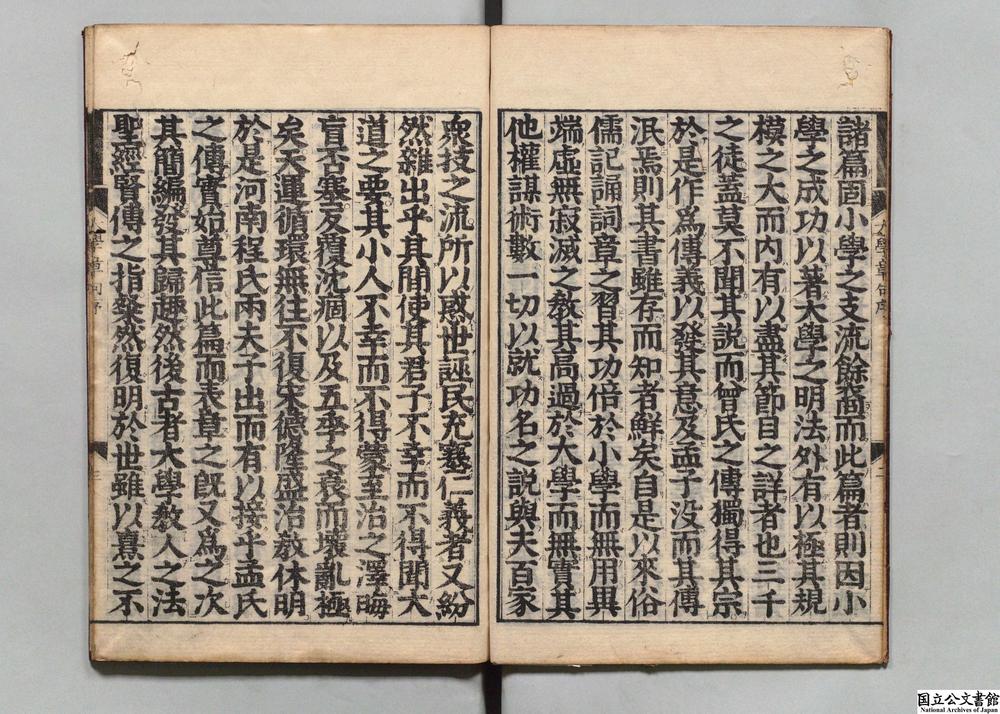 諸篇固小學之支流餘裔而此篇者則因小
學之成功以著大學之明法外有以極其規
模之大而内有以盡其節目之詳者也三千
之徒蓋莫不聞其説而曾氏之傳獨得其宗
於是作爲傳義以發其意及孟子没而其傳
泯焉則其書雖存而知者鮮矣自是以來俗
儒記誦詞章之習其功倍於小學而無用異
端虛無寂滅之教其高過於大學而無實其
他權謀術數一切以就功名之説與夫百家
衆技之流所以惑世誣民充塞仁義者又紛
然雜出乎其間使其君子不幸而不得聞大
道之要其小人不幸而不得蒙至治之澤晦
盲否塞反覆沈痼以及五季之衰而壞亂極
矣天運循環無往不復宋德隆盛治教休明
於是河南程氏兩夫子出而有以接乎孟氏
之傳實始尊信此篇而表章之旣又爲之次
其簡編發其歸趣然後古者大學教人之法
聖經賢傳之指粲然復明於世雖以熹之不
大學章句序
國立公文書館
National Archives of Japan